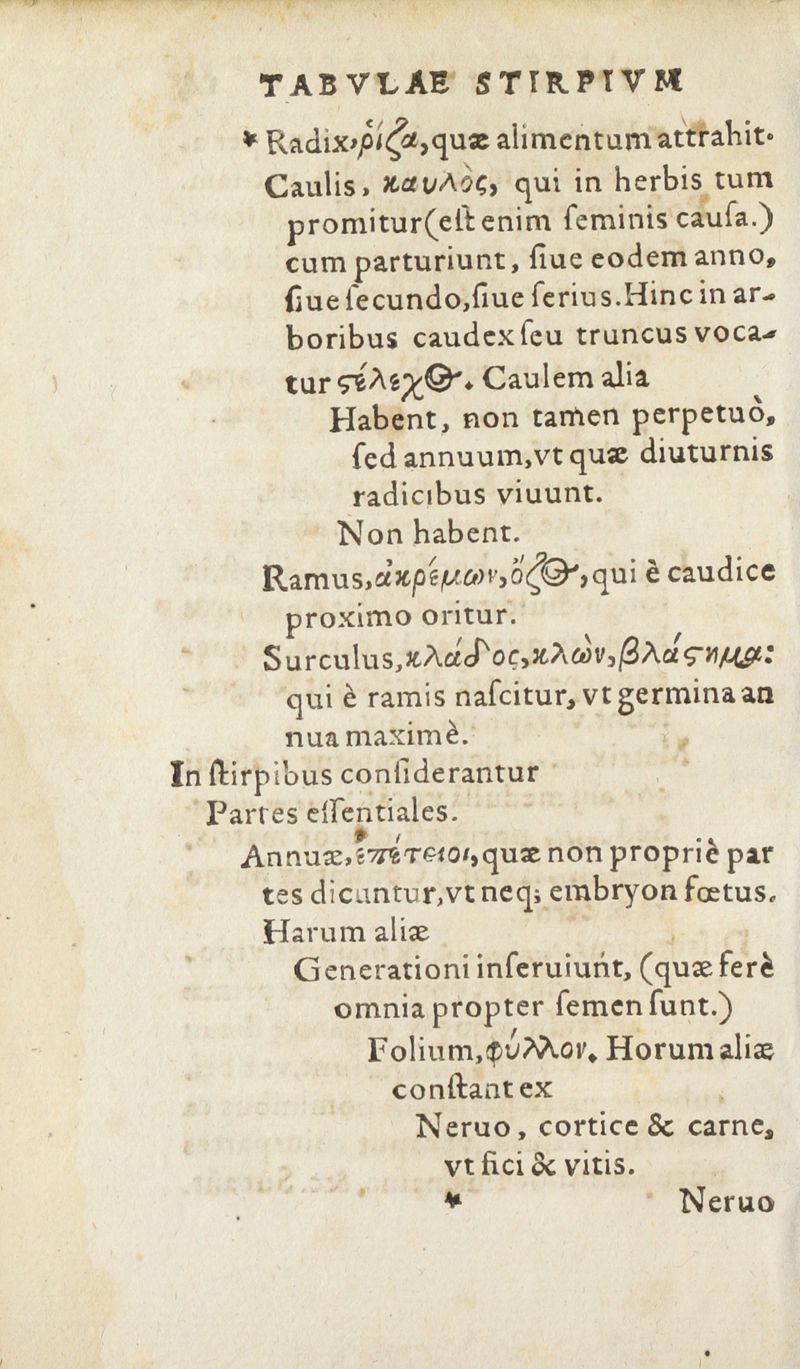 TABVLAE STIRPIVM
* Radix, ῥίζα, quæ alimentum attrahit.
Caulis, καυλὸς, qui in herbis tum
promitur(eſt enim ſeminis cauſa.)
cum parturiunt, ſiue eodem anno,
ſiue ſecundo, ſiue ſerius. Hinc in ar-
boribus caudex ſeu truncus voca-
tur ϛέλεχος. Caulem alia
Habent, non tamen perpetuò,
ſed annuum, vt quæ diuturnis
radicibus viuunt.
Non habent.
Ramus, ἀκρέμων, ὄζος, qui è caudice
proximo oritur.
Surculus, κλάδος, κλὼν, βλάϛημα:
qui è ramis naſcitur, vt germina an
nua maximè.
In ſtirpibus conſiderantur
Partes eſſentiales.
Annuæ, ἐπέτειοι, quæ non propriè par
tes dicuntur, vt neq; embryon fœtus.
Harum aliæ
Generationi inſeruiunt, (quæ ferè
omnia propter ſemen ſunt.)
Folium, φύλλον. Horum aliæ
conſtant ex
Neruo, cortice & carne,
vt fici & vitis.
* Neruo